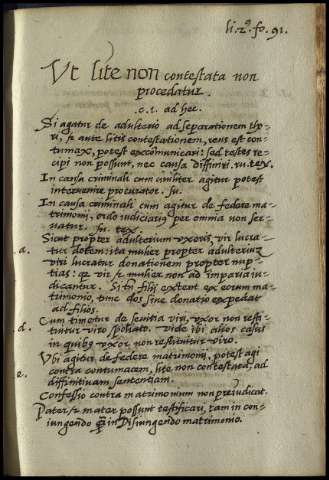 li. 2º. fo. 91.
Vt lite non contestata non
procedatur.
c. 1. ad hec.
Si agatur de adulterio ad separationem
si ante litis contestationem, reus est con-
tumax, potest excommunicari: sed testes re-
cipi non possunt, nec causa diffiniri.
In causa criminali cum civiliter agitur potest
intervenire procurator. su.
In causa criminali cum agitur de federe ma-
trimonij, ordo iudiciarius per omnia non ser-
vatur. su. tex.
a. Sicut propter adulterium uxoris vir lucra-
tur dotem: ita mulier propter adulterium
viri lucratur donationem propter nup-
tias: vir et mulier non ad imparia iu-
dicantur. Si tñ filij extent ex eorum ma-
trimonio, tunc dos sine donatio expedat
ad filios.
d. Cum timetur de sevitia viri, uxor non resti-
tuitur viro spoliato. vide ibi alios casus
in quibus uxor non restituitur viro.
e. Vbi agitur de federe matrimonij, potest agi
contra contumacem, lite non contestata, ad
diffinitivam sententiam.
Confessio contra matrimonium non preiudicat.
Pater et mater possunt testificari, tam in con-
iungendo in disiungendo matrimonio.